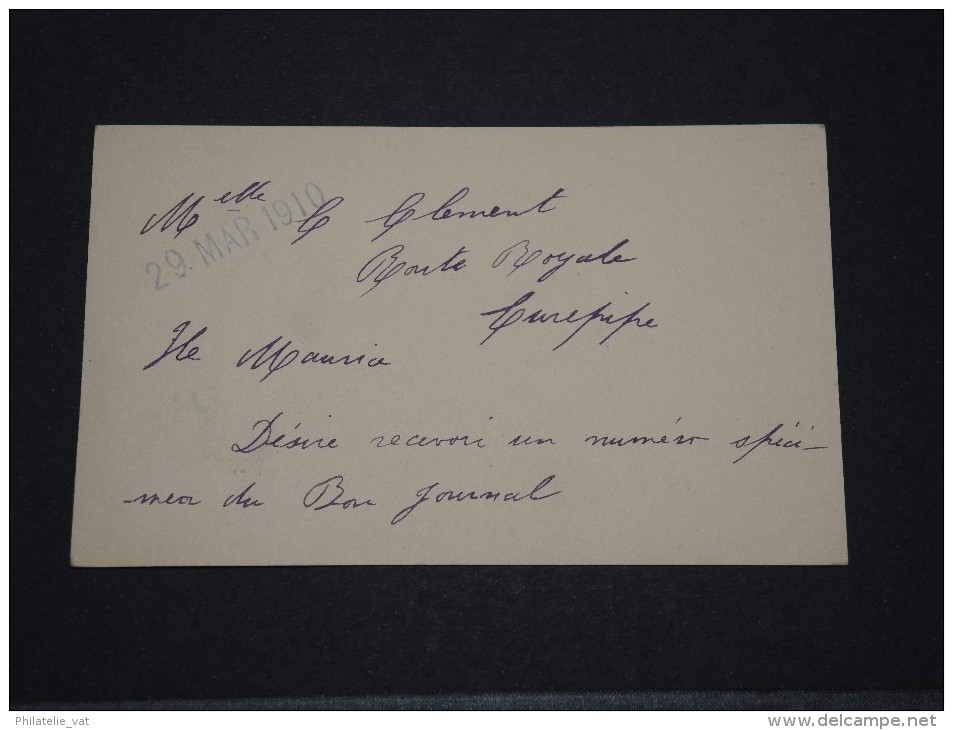 Melle C Clement
29 MAR 1910
Route Royale
Curepipe
Ile Maurice
Désire recevoir un numéro spéci-
-men du Bon Journal
Philatelie_vat
www.delcampe.net